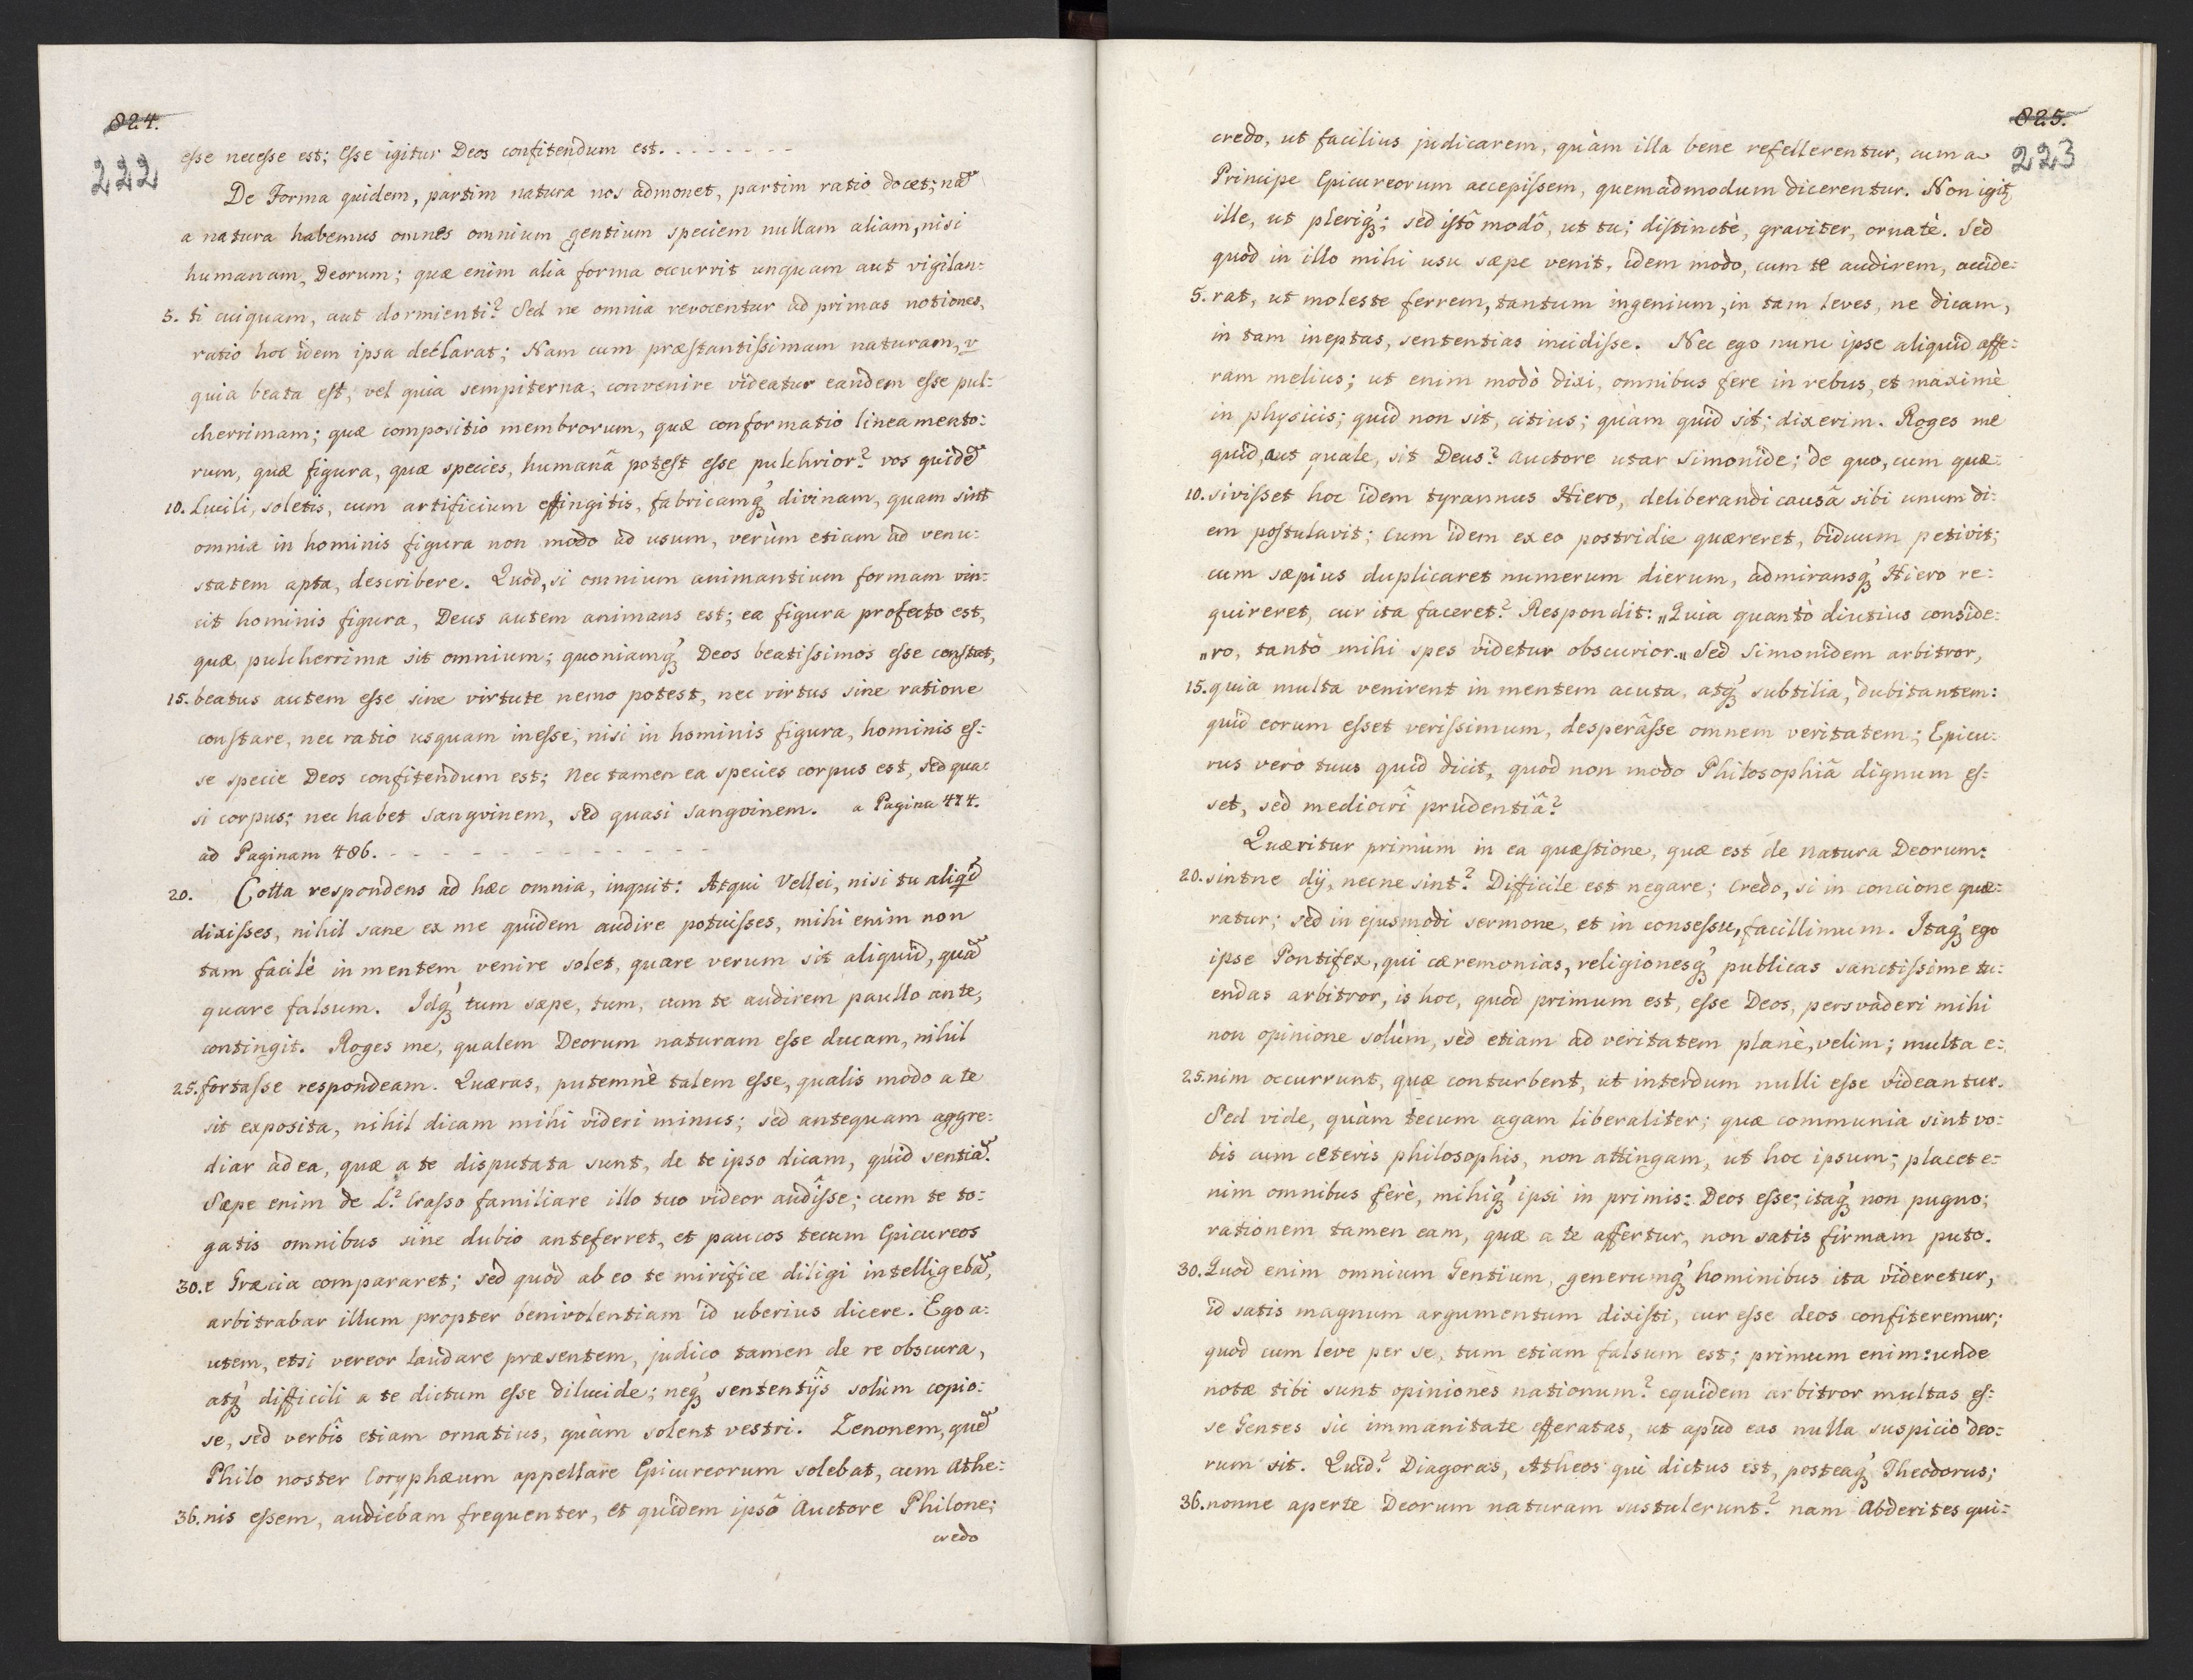 824.
222
esse necesse est; Esse igitur Deos confitendum est. - - - - - - -
De Forma quidem, partim natura nos admonet, partim ratio docet; nã
a natura habemus omnes omnium gentium speciem nullam aliam, nisi
humanam, Deorum; quæ enim alia forma occurrit unquam aut vigilan:
5. ti cuiquam, aut dormienti? Sed ne omnia revocentur ad primas notiones,
ratio hoc idem ipsa declarat; Nam cum præstantissimam naturam, v
quia beata est, vel quia sempiterna, convenire videatur eandem esse pul:
cherrimam; quæ compositio membrorum, quæ conformatio lineamento:
rum, quæ figura, quæ species, humanâ potest esse pulchrior? vos quidẽ
10. Lucili, soletis, cum artificium effingitis, fabricamq́ divinam, quam sint
omnia in hominis figura non modo ad usum, verùm etiam ad venu:
statem apta, describere. Quod, si omnium animantium formam vin:
cit hominis figura, Deus autem animans est; ea figura profecto est,
quæ pulcherrima sit omnium; quoniamq́ Deos beatissimos esse constat,
15. beatus autem esse sine virtute nemo potest, nec virtus sine ratione
constare, nec ratio usquam inesse, nisi in hominis figura, hominis es:
se specie Deos confitendum est; Nec tamen ea species corpus est, sed qua:
si corpus; nec habet sangvinem, sed quasi sangvinem. a Pagina 474.
ad Paginam 486. - - - - - - - - - - - -
20. Cotta respondens ad hæc omnia, inquit: Atqui Vellei, nisi tu aliqd
dixisses, nihil sane ex me quidem audire potuisses, mihi enim non
tam facilè in mentem venire solet, quare verum sit aliquid, quã
quare falsum. Idq́ tum sæpe, tum, cum te audirem paullo ante,
contingit. Roges me, qualem Deorum naturam esse ducam, nihil
25. fortasse respondeam. Quæras, putemnè talem esse, qualis modo a te
sit exposita, nihil dicam mihi videri minus; sed antequam aggre:
diar ad ea, quæ a te disputata sunt, de te ipso dicam, quid sentiã.
Sæpe enim de L? Crasso familiare illo tuo videor audîsse; cum te to:
gatis omnibus sine dubio anteferret, et paucos tecum Epicureos
30. e Græcia compararet; sed quod ab eo te mirifice diligi intelligebã,
arbitrabar illum propter benivolentiam id uberius dicere. Ego a:
utem, etsi vereor laudare præsentem, judico tamen de re obscura,
atq́ difficili a te dictum esse dilucide; neq́ sententijs solùm copio:
se, sed verbîs etiam ornatius, quàm solent vestri. Zenonem, quẽ
Philo noster Coryphæum appellare Epicureorum solebat, cum Athe:
36. nis essem, audiebam frequenter, et quidem ipsô Auctore Philone;
credo
825.
223
credo, ut facilius judicarem, quàm illa bene refellerentur, cum a
Principe Epicureorum accepissem, quemadmodum dicerentur. Non igit
ille, ut pleriq́; sed istô modô, ut tu; distinctè, graviter, ornatè. Sed
quod in illo mihi usu sæpe venit, idem modo, cum te audirem, accide:
5. rat, ut moleste ferrem, tantum ingenium, in tam leves, ne dicam,
in tam ineptas, sententias incidisse. Nec ego nunc ipse aliquid affe:
ram melius; ut enim modò dixi, omnibus fere in rebus, et maximè
in physicis; quid non sit, citius; quàm quid sit; dixerim. Roges me
quid, aut quale, sit Deus? auctore utar Simonide; de quo, cum quæ:
10. sivisset hoc idem tyrannus Hiero, deliberandi causâ sibi unum di:
em postulavit; Cum idem ex eo postridie quæreret, biduum petivit;
cum sæpius duplicaret numerum dierum, admiransq́ Hiero re:
quireret, cur ita faceret? Respondit: „Quia quantò diutius conside:
„ro, tantò mihi spes videtur obscurior.„ Sed Simonidem arbitror,
15. quia multa venirent in mentem acuta, atq́ subtilia, dubitantem:
quid eorum esset verissimum, desperâsse omnem veritatem; Epicu:
rus verò tuus quid dicit, quod non modo Philosophiâ dignum es:
set, sed mediocrî prudentiâ?
Quæritur primùm in ea quæstione, quæ est de Natura Deorum:
20. sintne dij, necne sint? Difficile est negare; Credo, si in concione quæ:
ratur; sed in ejusmodi sermone, et in consessu, facillimum. Itaq́ ego
ipse Pontifex, qui cæremonias, religionesq́ publicas sanctissime tu:
endas arbitror, is hoc, quod primum est, esse Deos, persvaderi mihi
non opinione solùm, sed etiam ad veritatem planè, velim; multa e:
25. nim occurrunt, quæ conturbent, ut interdum nulli esse videantur.
Sed vide, quàm tecum agam liberaliter; quæ communia sint vo:
bis cum cæteris philosophis, non attingam, ut hoc ipsum; placet e:
nim omnibus ferè, mihiq́ ipsi in primis: Deos esse; itaq́ non pugno;
rationem tamen eam, quæ a te affertur, non satis firmam puto.
30. Quod enim omnium Gentium, generumq́ hominibus ita videretur,
id satis magnum argumentum dixisti, cur esse deos confiteremur;
quod cum leve per se, tum etiam falsum est; primum enim: unde
notæ tibi sunt opiniones nationum? equidem arbitror multas es:
se Gentes sic immanitate efferatas, ut apud eas nulla suspicio deo:
rum sit. Quid? Diagoras, Atheos qui dictus est, posteaq́ Theodorus;
36. nonne aperte Deorum naturam sustulerunt? nam Abderites qui: